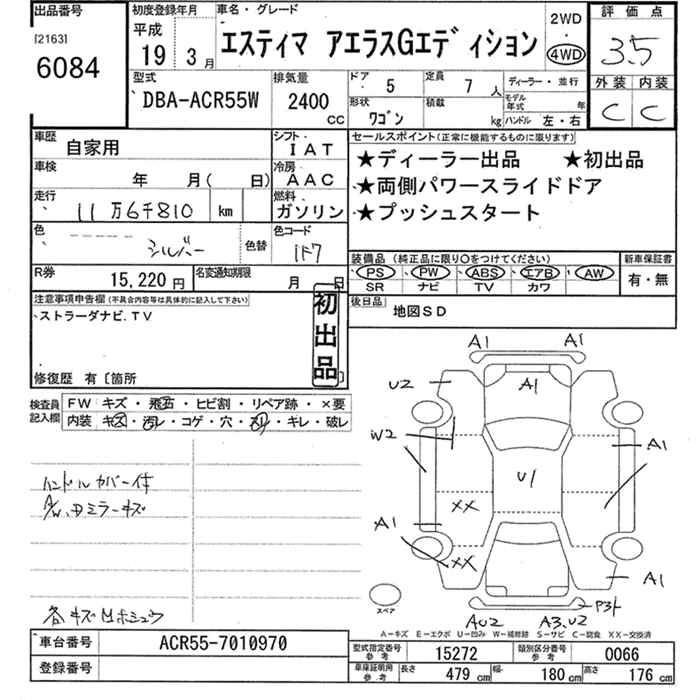 出品番号
[2163]
6084
初度登録年月
平成
19 3月
車名・グレード
エスティマ アエラスGエディション
2WD
・
4WD
評価点
3.5
外装 内装
C C
型式
DBA-ACR55W
排気量
2400
CC
ドア 5
定員 7人
形状 ワゴン
積載 kg
ディーラー・並行
モデル年式 年
ハンドル 左・右
車歴 自家用
シフト IAT
車検 年 月( 日)
冷房 AAC
走行 11万6千810 km
燃料 ガソリン
色 シルバー
色替
色コード 1F7
R券 15,220円
名変通知期限 月 日
セールスポイント(正常に機能するものに限ります)
★ディーラー出品 ★初出品
★両側パワースライドドア
★プッシュスタート
装備品(純正品に限り○をつけてください)
PS PW ABS エアB AW
SR ナビ TV カワ
新車保証書
有・無
後日品 地図SD
注意事項申告欄(不具合内容等は具体的に記入して下さい)
ストラーダナビ.TV
初出品
修復歴 有〔箇所
検査員記入欄
FW キズ・飛石・ヒビ割・リペア跡・×要
内装 キズ・汚レ・コゲ・穴・スリ・キレ・破レ
ハンドルカバー付
ミラーキズ
各キズ凹ホシュウ
A1 A1
U2 A1
W2 A1
U1
XX
A1
XX
A1
P3ト
AU2 A3.U2
スペア
A-キズ E-エクボ U-凹み W-補修跡 S-サビ C-腐食 XX-交換済
車台番号 ACR55-7010970
登録番号
型式指定番号 参考 15272
類別区分番号 参考 0066
車庫証明用 参考 長さ 479cm 幅 180cm 高さ 176cm